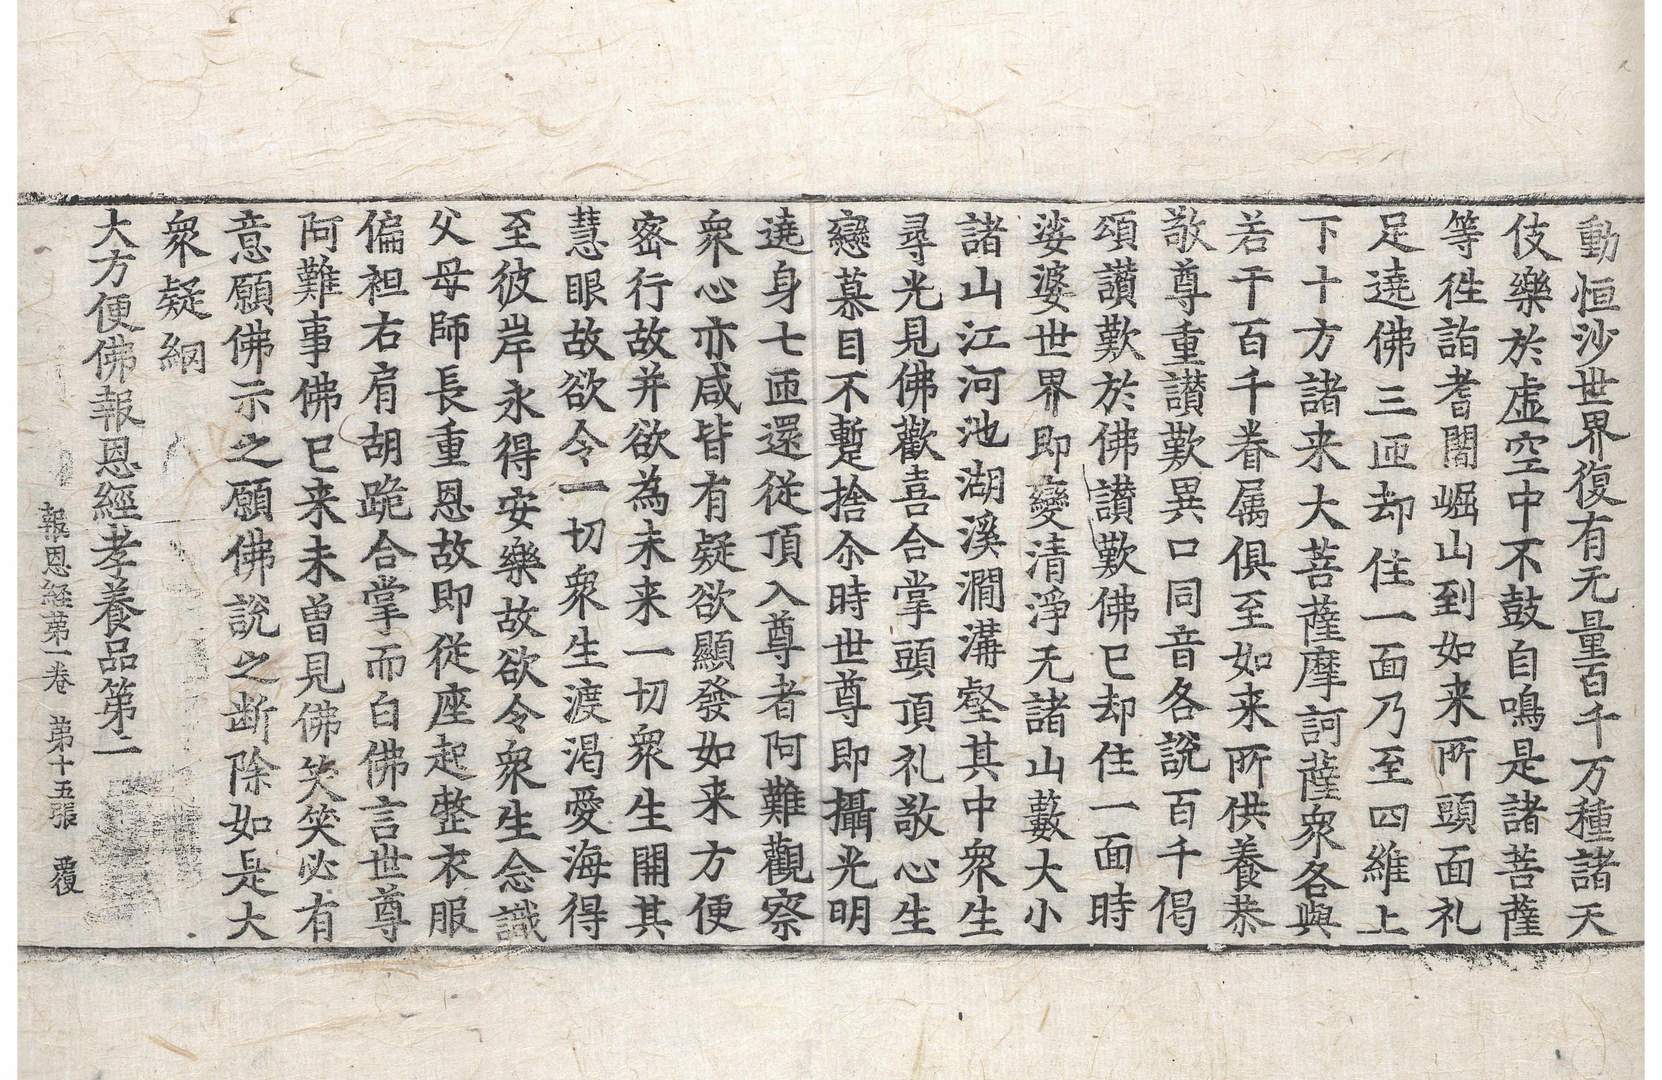 動恒沙世界復有无量百千万種諸天
伎樂於虛空中不鼓自鳴是諸菩薩
等徃詣耆闍崛山到如来所頭面礼
足遶佛三匝却住一面乃至四維上
下十方諸来大菩薩摩訶薩衆各與
若干百千眷属俱至如来所供養恭
敬尊重讃歎異口同音各說百千偈
頌讃歎於佛讃歎佛已却住一面時
娑婆世界即變清淨无諸山藪大小
諸山江河池湖溪澗溝壑其中衆生
尋光見佛歡喜合掌頭頂礼敬心生
戀慕目不暫捨尒時世尊即攝光明
遶身七匝還従頂入尊者阿難觀察
衆心亦咸皆有疑欲顯發如来方便
宻行故并欲為未来一切衆生開其
慧眼故欲令一切衆生渡渴愛海得
至彼岸永得安樂故欲令衆生念識
父母師長重恩故即從座起整衣服
偏袒右肩胡跪合掌而白佛言世尊
阿難事佛已来未曽見佛笑笑必有
意願佛示之願佛說之断除如是大
衆疑網
大方便佛報恩經孝養品第二
報恩経第一卷　第十五張　覆